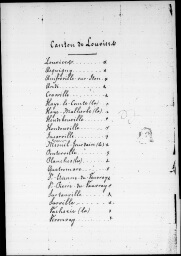 Canton de Louviers
Louviers
Acquigny
Amfreville sur Iton
Andé
Crasville
Haye le Comte (la)
Haye Malherbe (la)
Heudebouville
Hondouville
Incarville
Mesnil Jourdain (le)
Pinterville
Planches (les)
Quatremare
St Etienne du Vauvray
St Pierre du Vauvray
Surtauville
Surville
Vacherie (la)
Vironvay